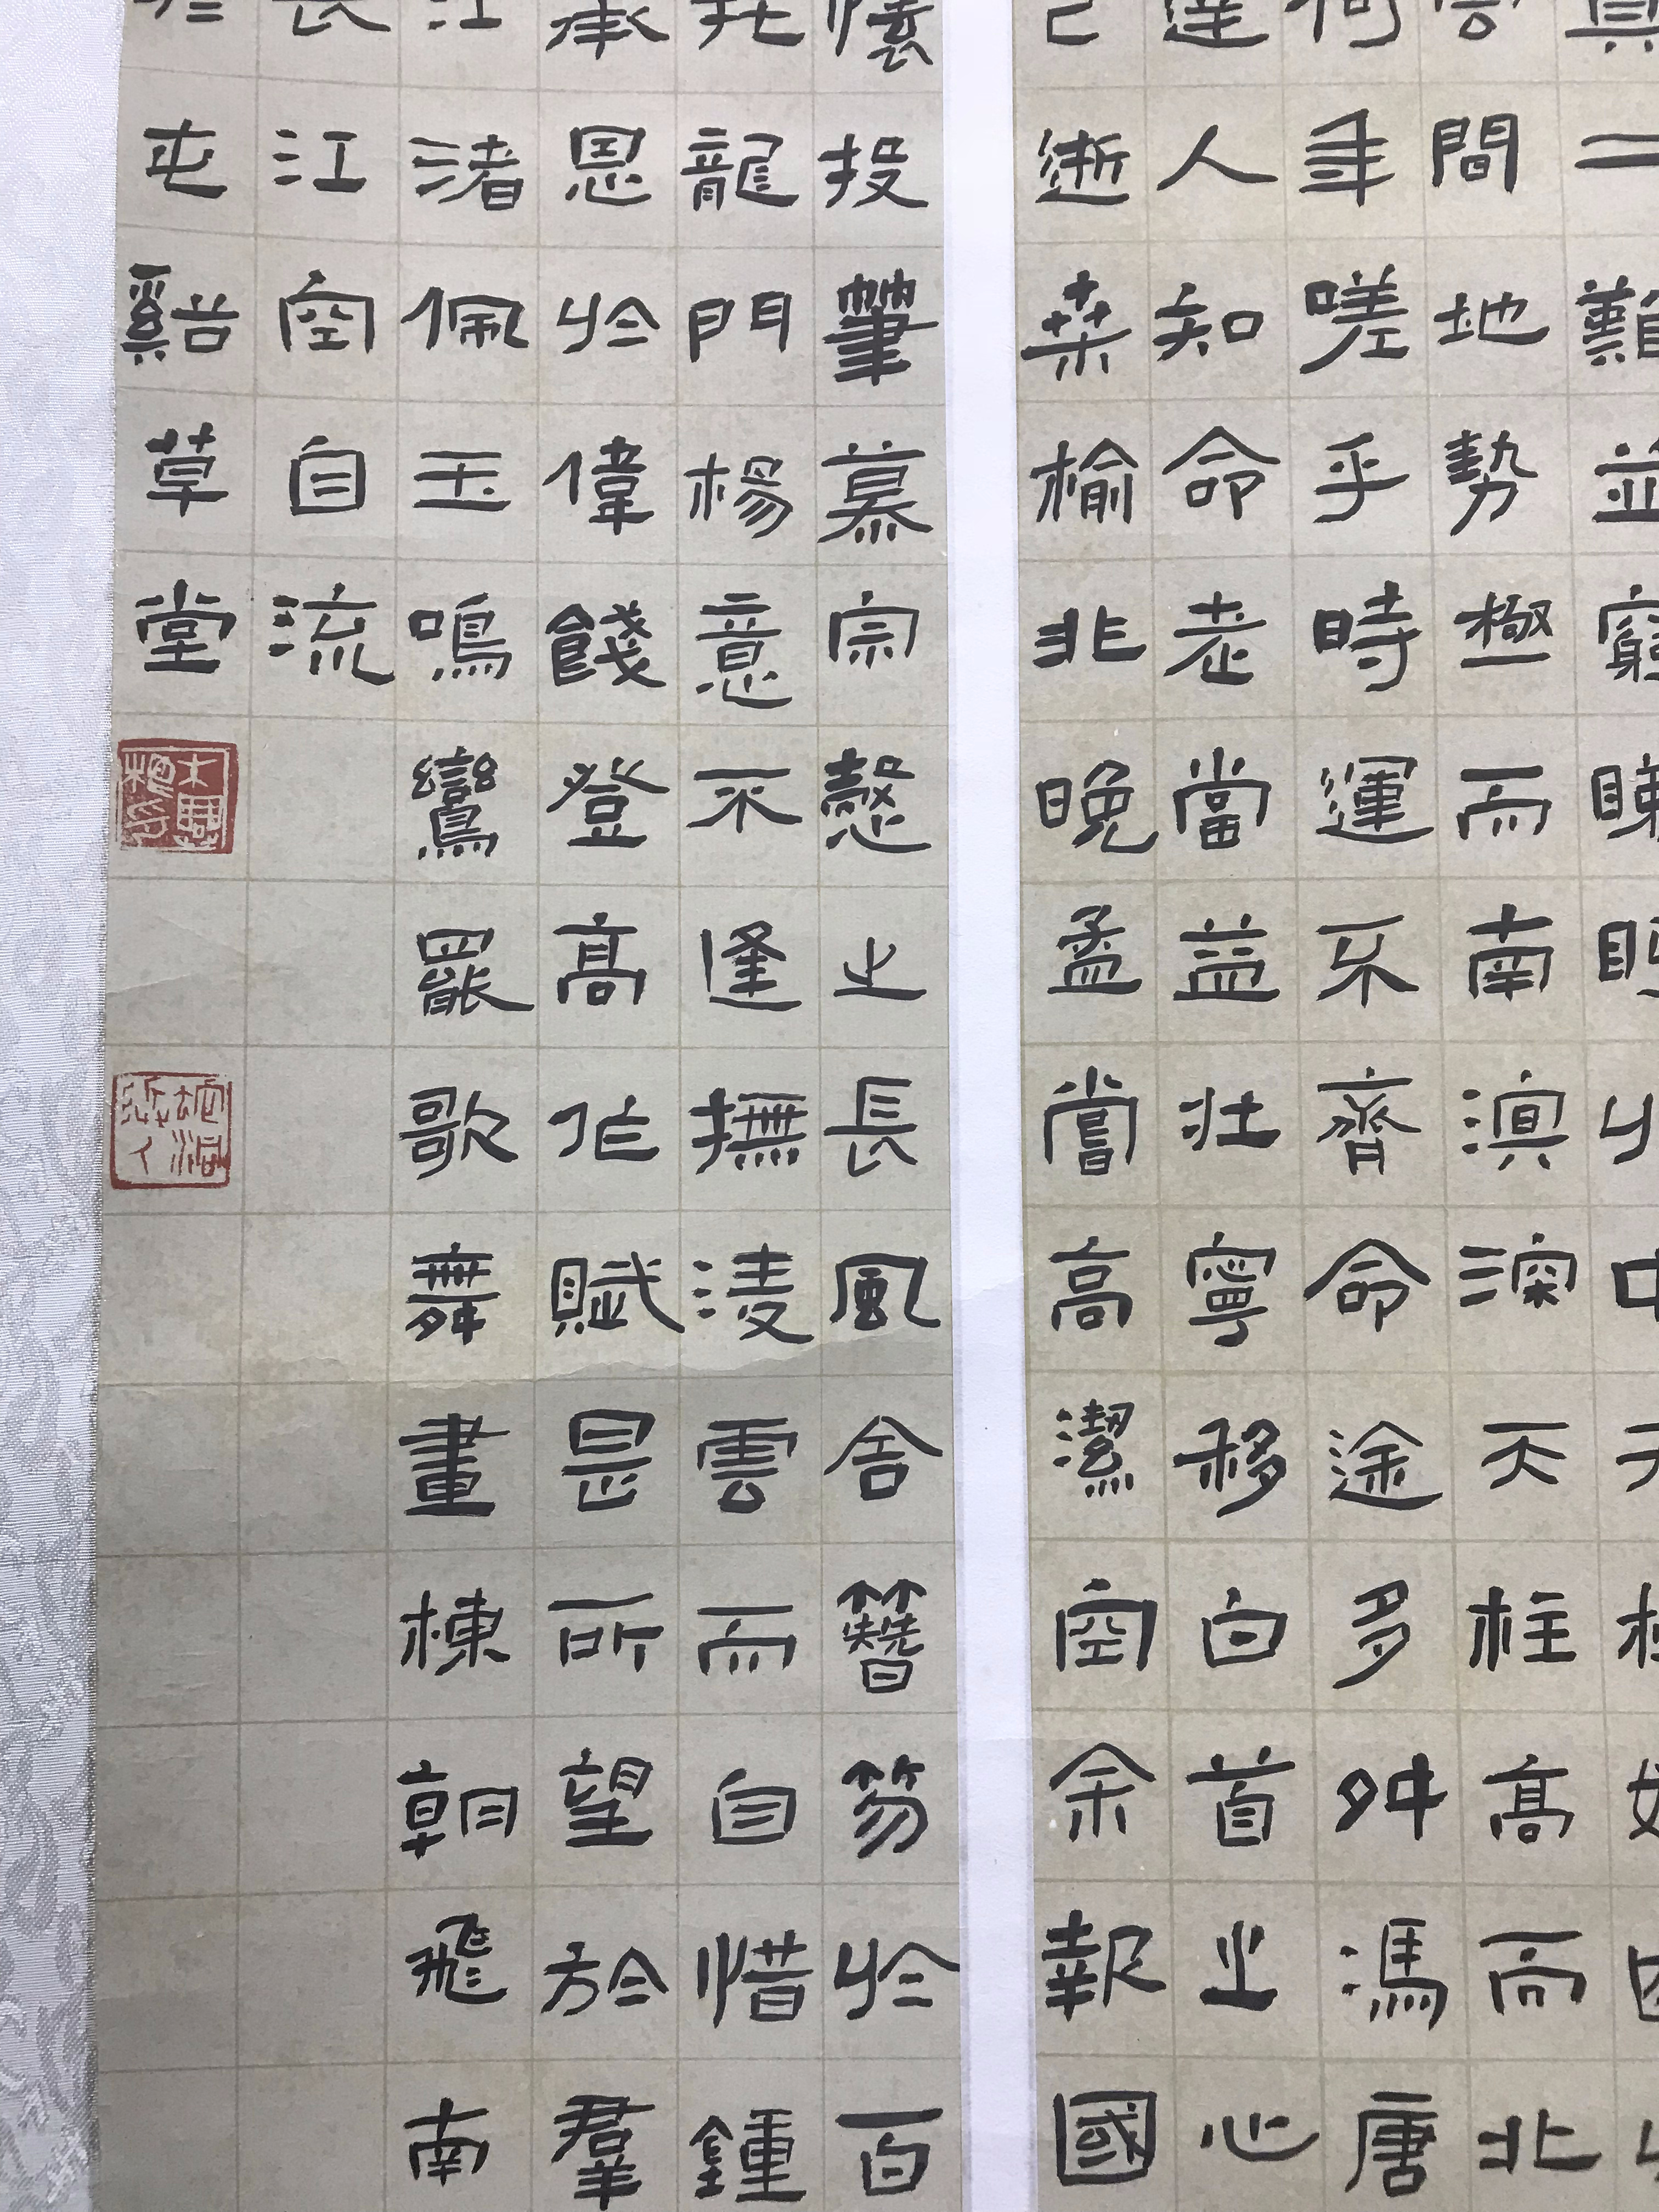 二難並窮睇眄
間地勢極而南溟深天柱高而北
何年嗟乎時運不齊命途多舛馮唐
達人知命老當益壯寧移白首之心
已逝桑榆非晚孟嘗高潔空余報國
懷投筆慕宗慤之長風舍簪笏於百
托龍門楊意不逢撫淩雲而自惜鍾
承恩於偉餞登高作賦是所望於羣
江渚佩玉鳴鸞罷歌舞畫棟朝飛南
長江空自流
於屯谿草堂